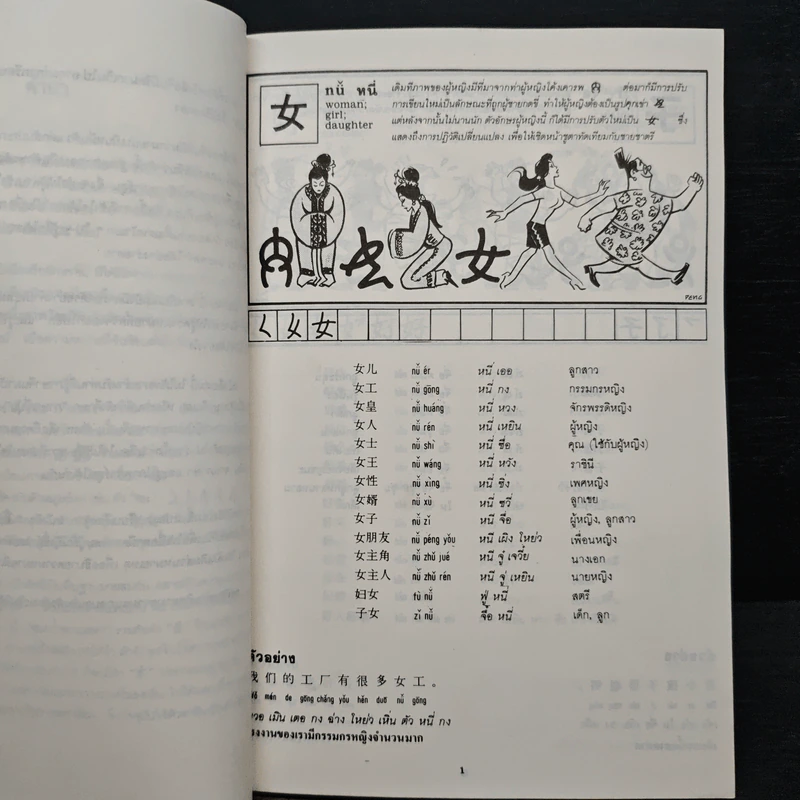 女
nǚ หนี่
woman;
girl;
daughter
เดิมทีภาพของผู้หญิงมีที่มาจากท่าผู้หญิงโค้งเคารพ ต่อมาก็มีการปรับ
การเขียนใหม่เป็นลักษณะที่ถูกผู้ชายกดขี่ ทำให้ผู้หญิงต้องเป็นรูปคุกเข่า
แต่หลังจากนั้นไม่นานนัก ตัวอักษรผู้หญิงนี้ ก็ได้มีการปรับตัวใหม่เป็น 女 ซึ่ง
แสดงถึงการปฏิวัติเปลี่ยนแปลง เพื่อให้เชิดหน้าชูตาทัดเทียมกับชายชาตรี
女
PENG
く 女 女
女儿 nǚ ér หนี่ เออ ลูกสาว
女工 nǚ gōng หนี่ กง กรรมกรหญิง
女皇 nǚ huáng หนี่ หวง จักรพรรดิหญิง
女人 nǚ rén หนี่ เหยิน ผู้หญิง
女士 nǚ shì หนี่ ซื่อ คุณ (ใช้กับผู้หญิง)
女王 nǚ wáng หนี่ หวัง ราชินี
女性 nǚ xìng หนี่ ซิ่ง เพศหญิง
女婿 nǚ xù หนี่ ซวี่ ลูกเขย
女子 nǚ zǐ หนี จื่อ ผู้หญิง, ลูกสาว
女朋友 nǚ péng yǒu หนี่ เผิง ใหย่ว เพื่อนหญิง
女主角 nǚ zhǔ jué หนี จู่ เจวี๋ย นางเอก
女主人 nǚ zhǔ rén หนี จู่ เหยิน นายหญิง
妇女 fù nǚ ฟู่ หนี่ สตรี
子女 zǐ nǚ จื๋อ หนี่ เด็ก, ลูก
ตัวอย่าง
我们的工厂有很多女工。
Wǒ mén de gōng chǎng yǒu hěn duō nǚ gōng
เมิน เตอ กง ฉ่าง ใหย่ว เหิ่น ตัว หนี่ กง
โรงงานของเรามีกรรมกรหญิงจำนวนมาก
1